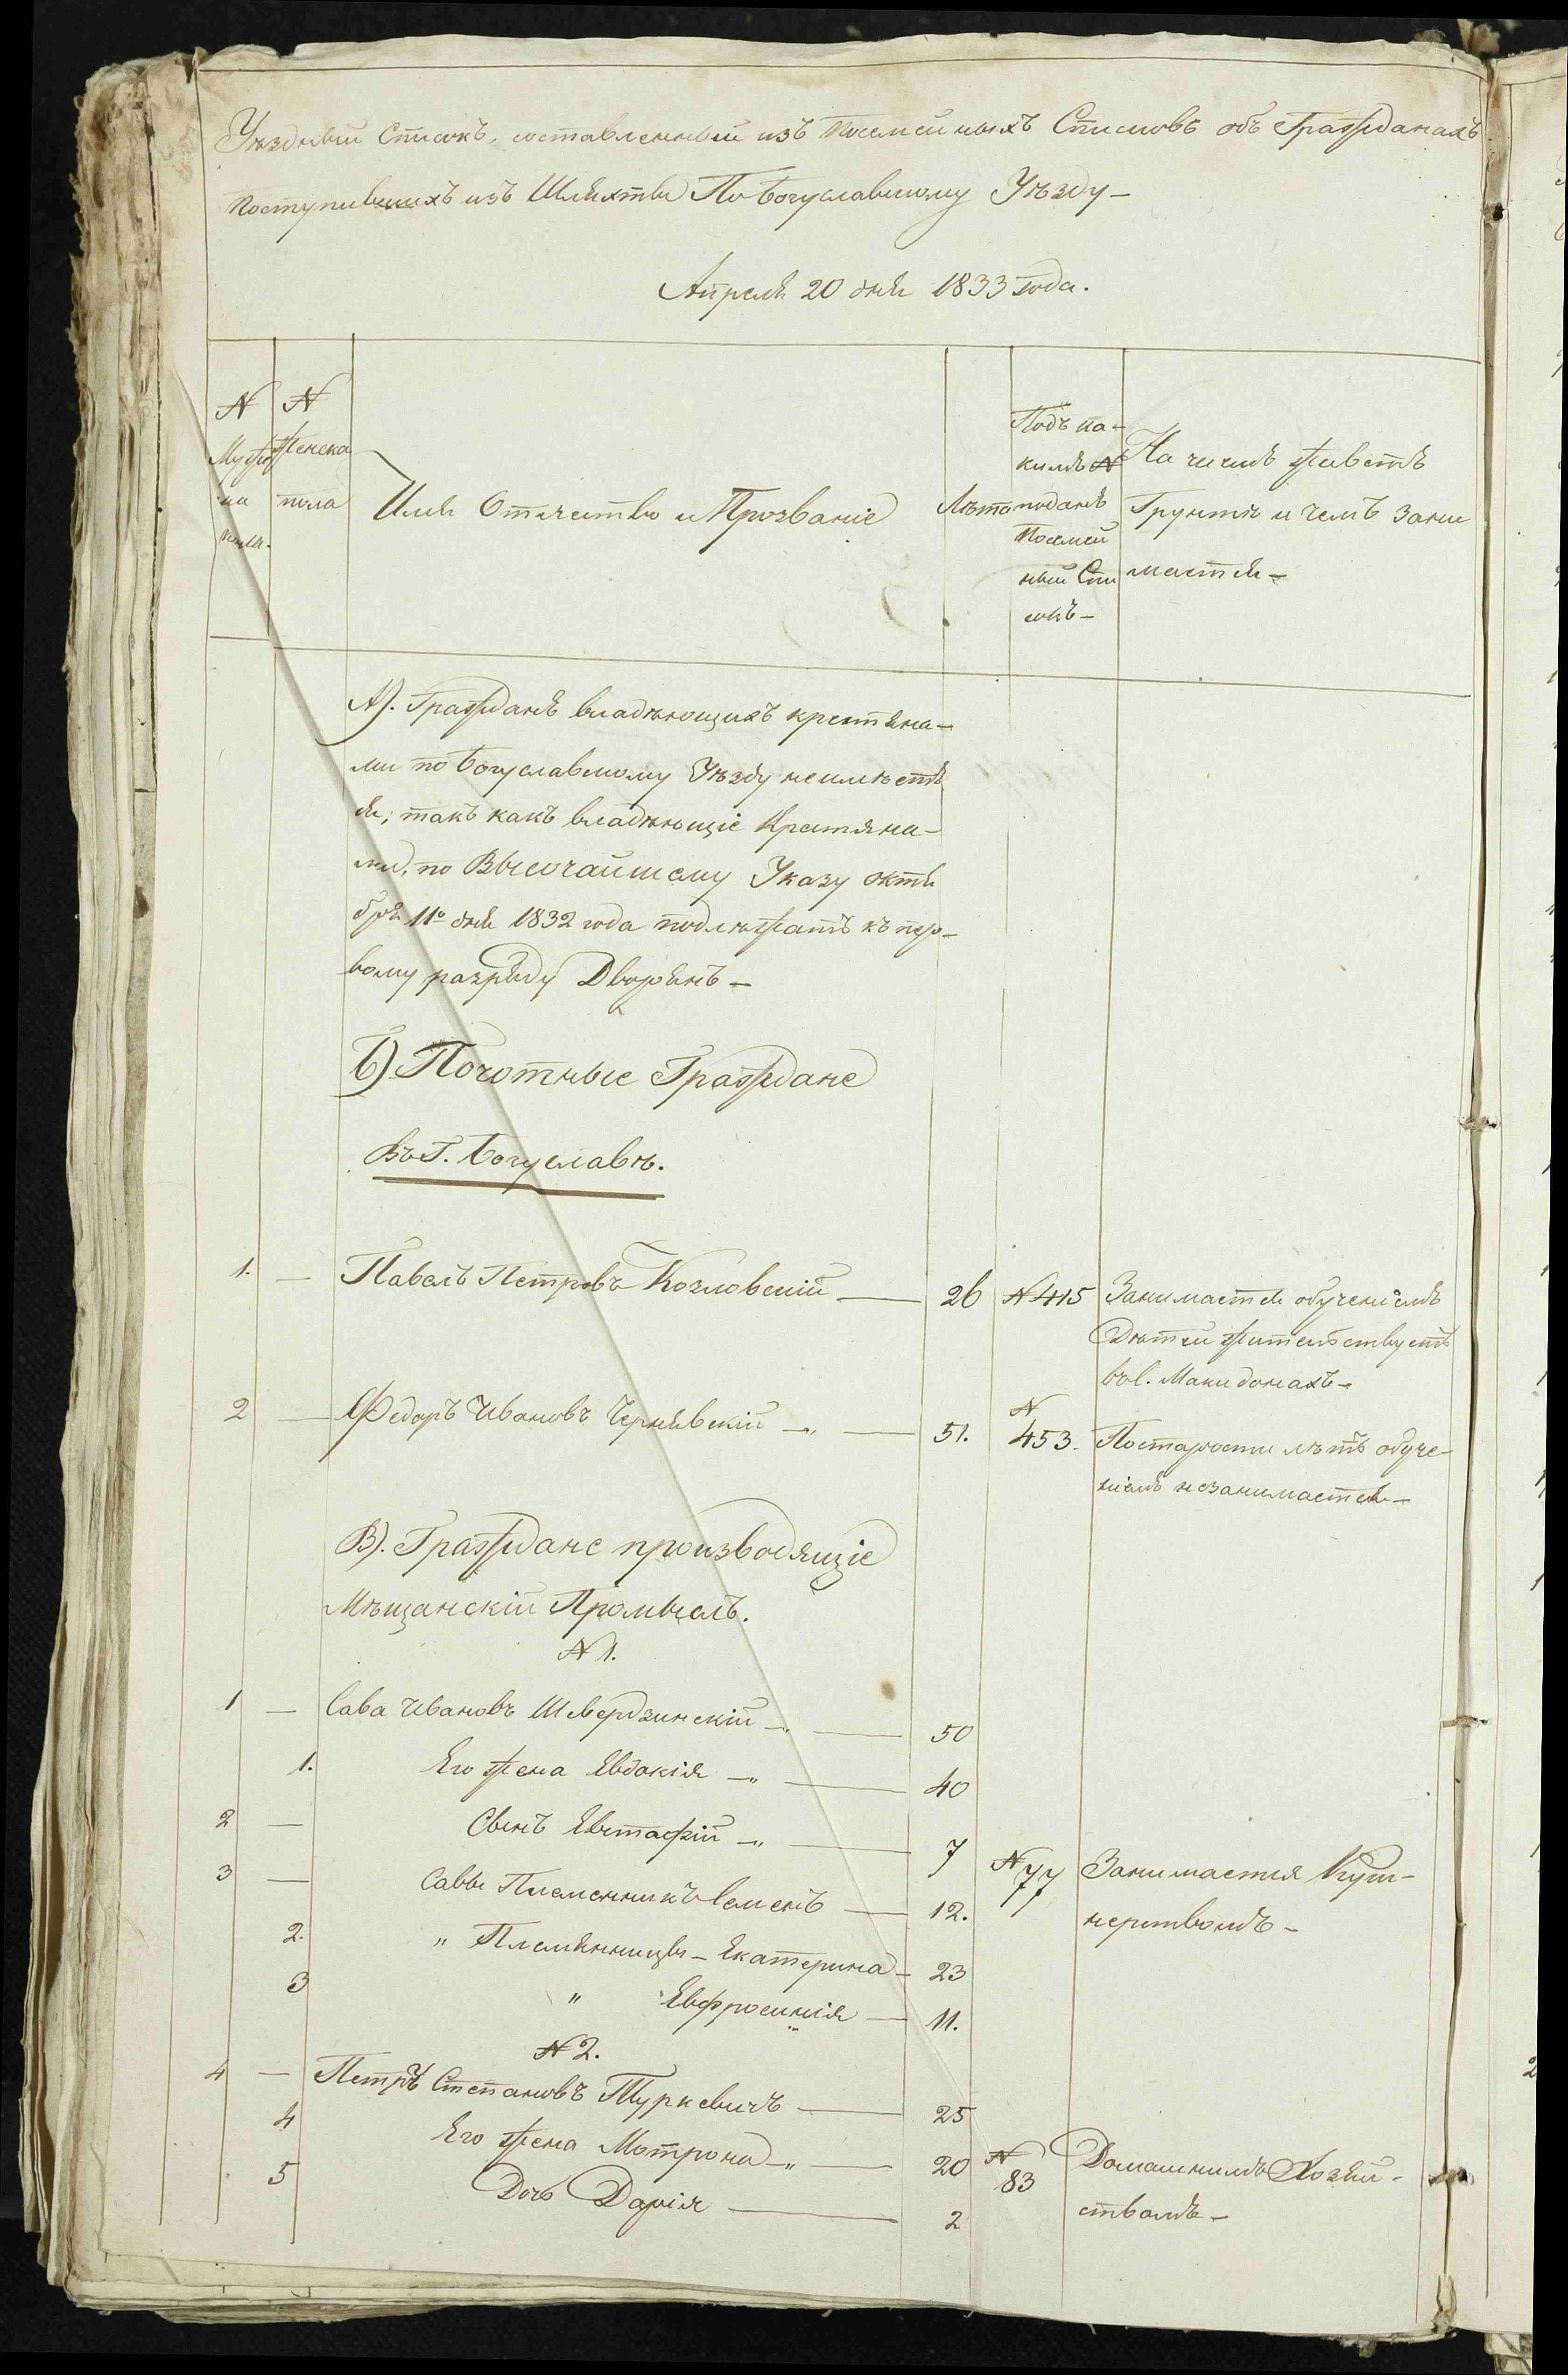 Уѣздный Списокъ, составленный изъ Посемейныхъ Списковъ объ Гражданахъ
поступившихъ изъ Шляхты По Богуславскому Уѣзду –
Апреля 20 дня 1833 года.
N Мужска пола
N Женска пола
Имя Отечество и Прозваніе
Лѣта
Подъ ка-
кимъ N
поданъ
Посемей
ный Спи
сокъ –
На чіемъ живетъ
Грунтѣ и чемъ Зани
мается –
А). Гражданъ владѣющихъ крестьяна-
ми по Богуславскому Уѣзду неимѣетъ
ся; такъ какъ владѣющіе Крестьяна-
ми, по Высочайшему Указу октя
бря 11º дня 1832 года подлѣжатъ къ пер-
вому разряду Дворянъ –
Б) Почотные Граждане
Въ Г. Богуславѣ.
1. — Павелъ Петровъ Козловскій — 26 N 415 Занимается обученіемъ
Дѣтей жительствуетъ
въ с. Макидонахъ –
2 — Федоръ Ивановъ Чернявскій —„— 51. N 453. Постарости лѣтъ обуче-
ніемъ незанимается –
В). Граждане производящіе
Мѣщанскій Промыслъ.
N 1.
1 — Сава Ивановъ Шевердзинскій —„— 50
1. Его жена Евдокія —„— 40
2 — Сынъ Евстафій —„— 7 N 77 Занимается Куш-
3 — Саввы Племенникъ Семенъ — 12. нерствомъ –
2. „ Племянницы – Екатерина – 23
3 „ Евфросинія — 11.
N 2.
4 — Петръ Степановъ Туркевичъ — 25
4 Его жена Мотрона —„— 20 N 83 Домашнимъ Хозяй-
5 Дочь Дарія — 2 ствомъ –